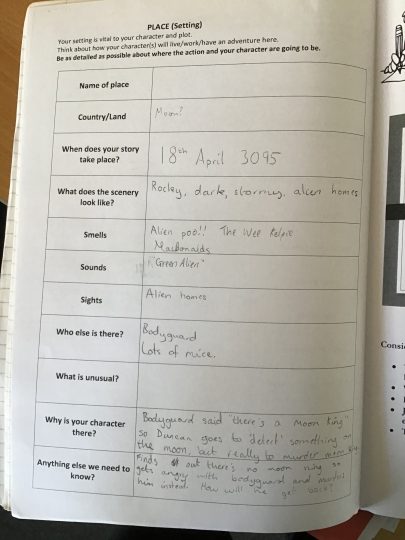 PLACE (Setting)
Your setting is vital to your character and plot.
Think about how your character(s) will live/work/have an adventure here.
Be as detailed as possible about where the action and your character are going to be.
Name of place
Country/Land
Moon?
When does your story
take place?
18th April 3095
What does the scenery
look like?
Rocky, dark, stormy, alien homes
Smells
Alien poo!! The Wee Kelpie
Macdonalds
Sounds
"Green Alien"
Sights
Alien homes
Who else is there?
Bodyguard
Lots of mice.
What is unusual?
Why is your character
there?
Bodyguard said "there's a Moon King"
so Duncan goes to 'detect' something on
the moon, but really to murder moon
Anything else we need to
know?
Finds out there's no moon king so
gets angry with bodyguard and murders
him instead. How will he get back?
Consi